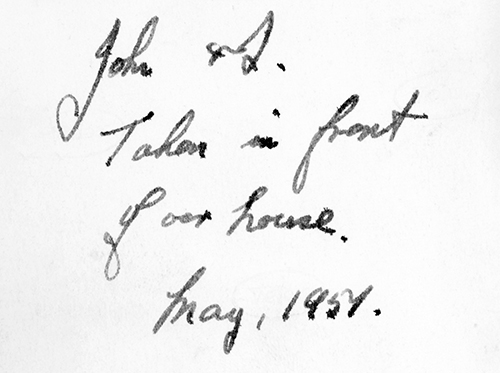 John & I.
Taken in front
of our house.
May, 1957.